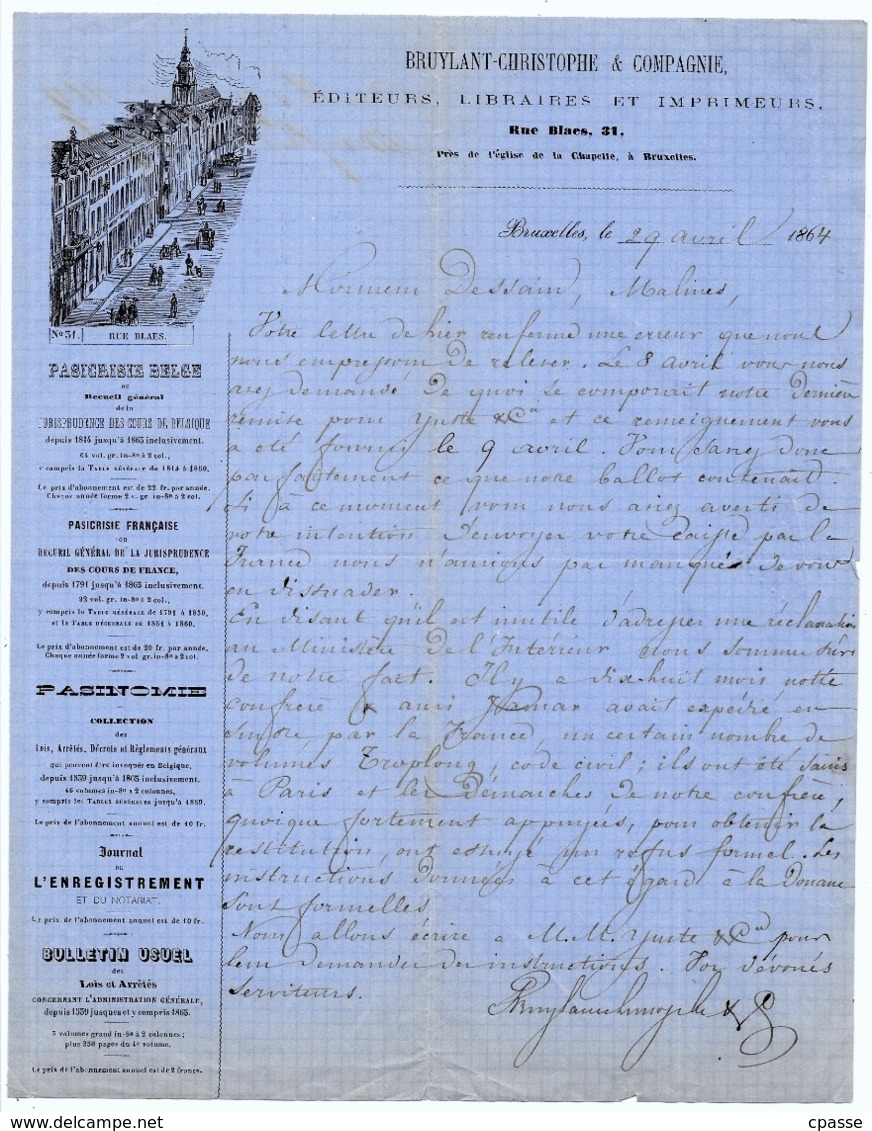 BRUYLANT-CHRISTOPHE & COMPAGNIE,
ÉDITEURS, LIBRAIRES ET IMPRIMEURS.
Rue Blaes, 31.
Près de l'église de la Chapelle, à Bruxelles.
Bruxelles, le 29 avril 1864
No 31. RUE BLAES.
PASICRISIE BELGE
ou
Recueil général
de la
JURISPRUDENCE DES COURS DE BELGIQUE
depuis 1814 jusqu'à 1863 inclusivement.
64 vol. gr. in-8o à 2 col.,
y compris la TABLE GÉNÉRALE de 1814 à 1860.
Le prix d'abonnement est de 22 fr. par année.
Chaque année forme 2 v. gr. in-8o à 2 col.
PASICRISIE FRANÇAISE
ou
RECUEIL GÉNÉRAL DE LA JURISPRUDENCE
DES COURS DE FRANCE,
depuis 1791 jusqu'à 1863 inclusivement.
92 vol. gr. in-8o à 2 col.,
y compris la TABLE GÉNÉRALE de 1791 à 1850,
et la TABLE DÉCENNALE de 1851 à 1860.
Le prix d'abonnement est de 20 fr. par année.
Chaque année forme 2 vol gr. in-8o à 2 col.
PASINOMIE
COLLECTION
des
Lois, Arrêtés, Décrets et Règlements généraux
qui peuvent être invoqués en Belgique,
depuis 1539 jusqu'à 1863 inclusivement.
46 volumes in-8o à 2 colonnes,
y compris les TABLES GÉNÉRALES jusqu'à 1859.
Le prix de l'abonnement annuel est de 10 fr.
Journal
DE
L'ENREGISTREMENT
ET DU NOTARIAT.
Le prix de l'abonnement annuel est de 10 fr.
BULLETIN USUEL
des
Lois et Arrêtés
CONCERNANT L'ADMINISTRATION GÉNÉRALE,
depuis 1539 jusques et y compris 1863.
3 volumes grand in-8o à 2 colonnes;
plus 250 pages du 4e volume.
Le prix de l'abonnement annuel est de 2 francs.
Monsieur Dessain, Malines,
Votre lettre de hier renferme une erreur que nous
nous empressons de relever. Le 8 avril vous nous
avez demandé de quoi se composait notre dernière
remise pour Yuste & Cie et ce renseignement vous
a été fourni le 9 avril. Vous savez donc
parfaitement ce que notre ballot contenait.
Si à ce moment vous nous aviez averti de
votre intention d'envoyer votre caisse par la
France nous n'aurions pas manqué de vous
en dissuader.
En disant qu'il est inutile d'adresser une réclamation
au Ministère de l'Intérieur nous sommes sûrs
de notre fait. Il y a dix-huit mois notre
confrère & ami Jamar avait expédié en
par la France, un certain nombre de
volumes Troplong, code civil; ils ont été saisis
à Paris et les démarches de notre confrère,
quoique fortement appuyées, pour obtenir la
restitution, ont essuyé un refus formel. Les
instructions données à cet égard à la Douane
sont formelles
Nous allons écrire à M.M. Yuste & Cie pour
leur demander des instructions. Vos dévoués
serviteurs.
Bruylant Christophe & C
cpasse